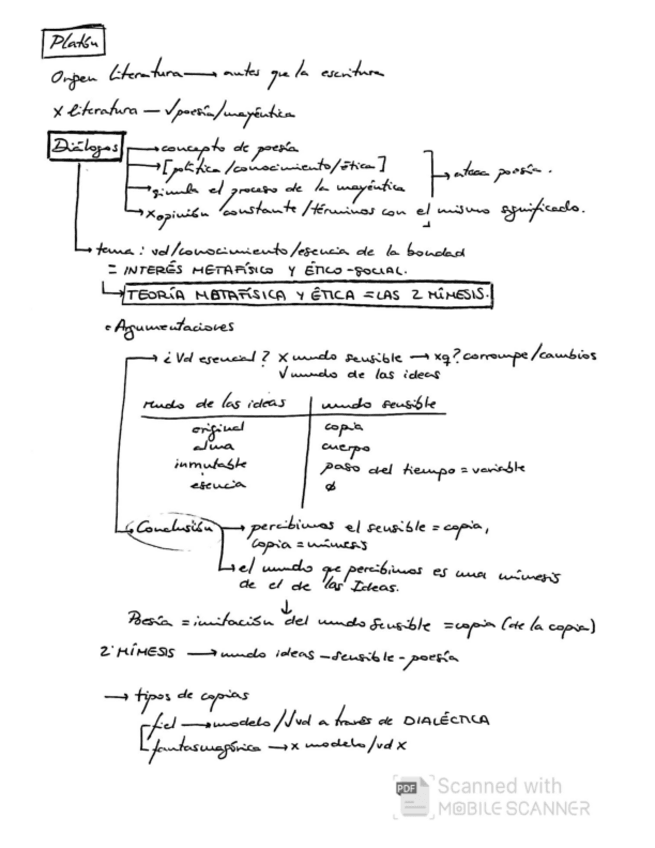 Platón
Origen Literatura → antes que la escritura
x literatura — √poesía/mayéutica
Diálogos → concepto de poesía
→ [política/conocimiento/ética]
→ simula el proceso de la mayéutica
→ ataca poesía.
→ x opinión constante/términos con el mismo significado.
→ tema: vd/conocimiento/esencia de la bondad
= INTERÉS METAFÍSICO Y ÉTICO-SOCIAL.
→ TEORÍA METAFÍSICA Y ÉTICA = LAS 2 MÍMESIS.
• Argumentaciones
→ ¿Vd esencial? x mundo sensible → xq? corrompe/cambios
√ mundo de las ideas
mundo de las ideas | mundo sensible
original | copia
alma | cuerpo
inmutable | paso del tiempo = variable
esencia | ø
Conclusión → percibimos el sensible = copia,
copia = mímesis
→ el mundo que percibimos es una mímesis
de el de las Ideas.
↓
Poesía = imitación del mundo sensible = copia (de la copia)
2 MÍMESIS → mundo ideas – sensible – poesía
→ tipos de copias
fiel → modelo/√vd a través de DIALÉCTICA
fantasmagórica → x modelo/vd x
PDF Scanned with
MOBILE SCANNER